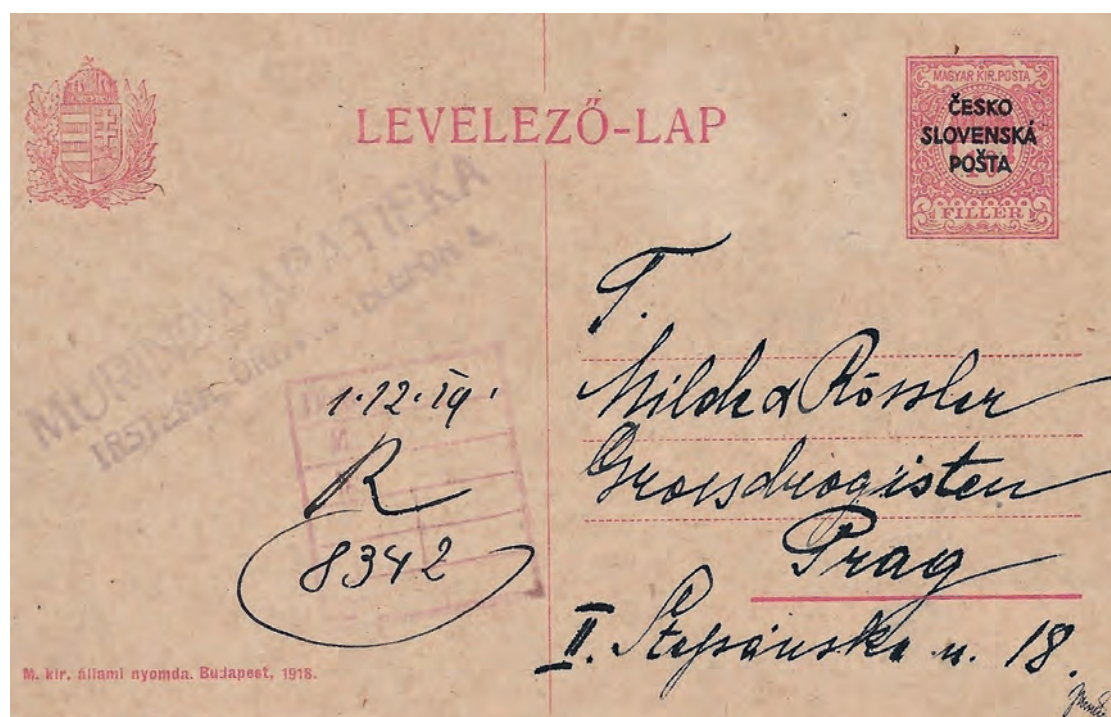 LEVELEZŐ-LAP
MAGYAR KIR. POSTA
ČESKO
SLOVENSKÁ
POŠTA
FILLÉR
APATIEKA
T.
Milde & Rössler
Grossdrogisten
Prag
II. Štepánska u. 18.
1.12.19.
R
8342
M. kir. állami nyomda. Budapest, 1918.